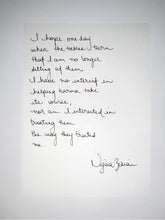 I hope one day
when the tables turn
that I am no longer
sitting at them.
I have no interest in
helping karma take
its course,
nor am I interested in
treating them
the way they treated
me